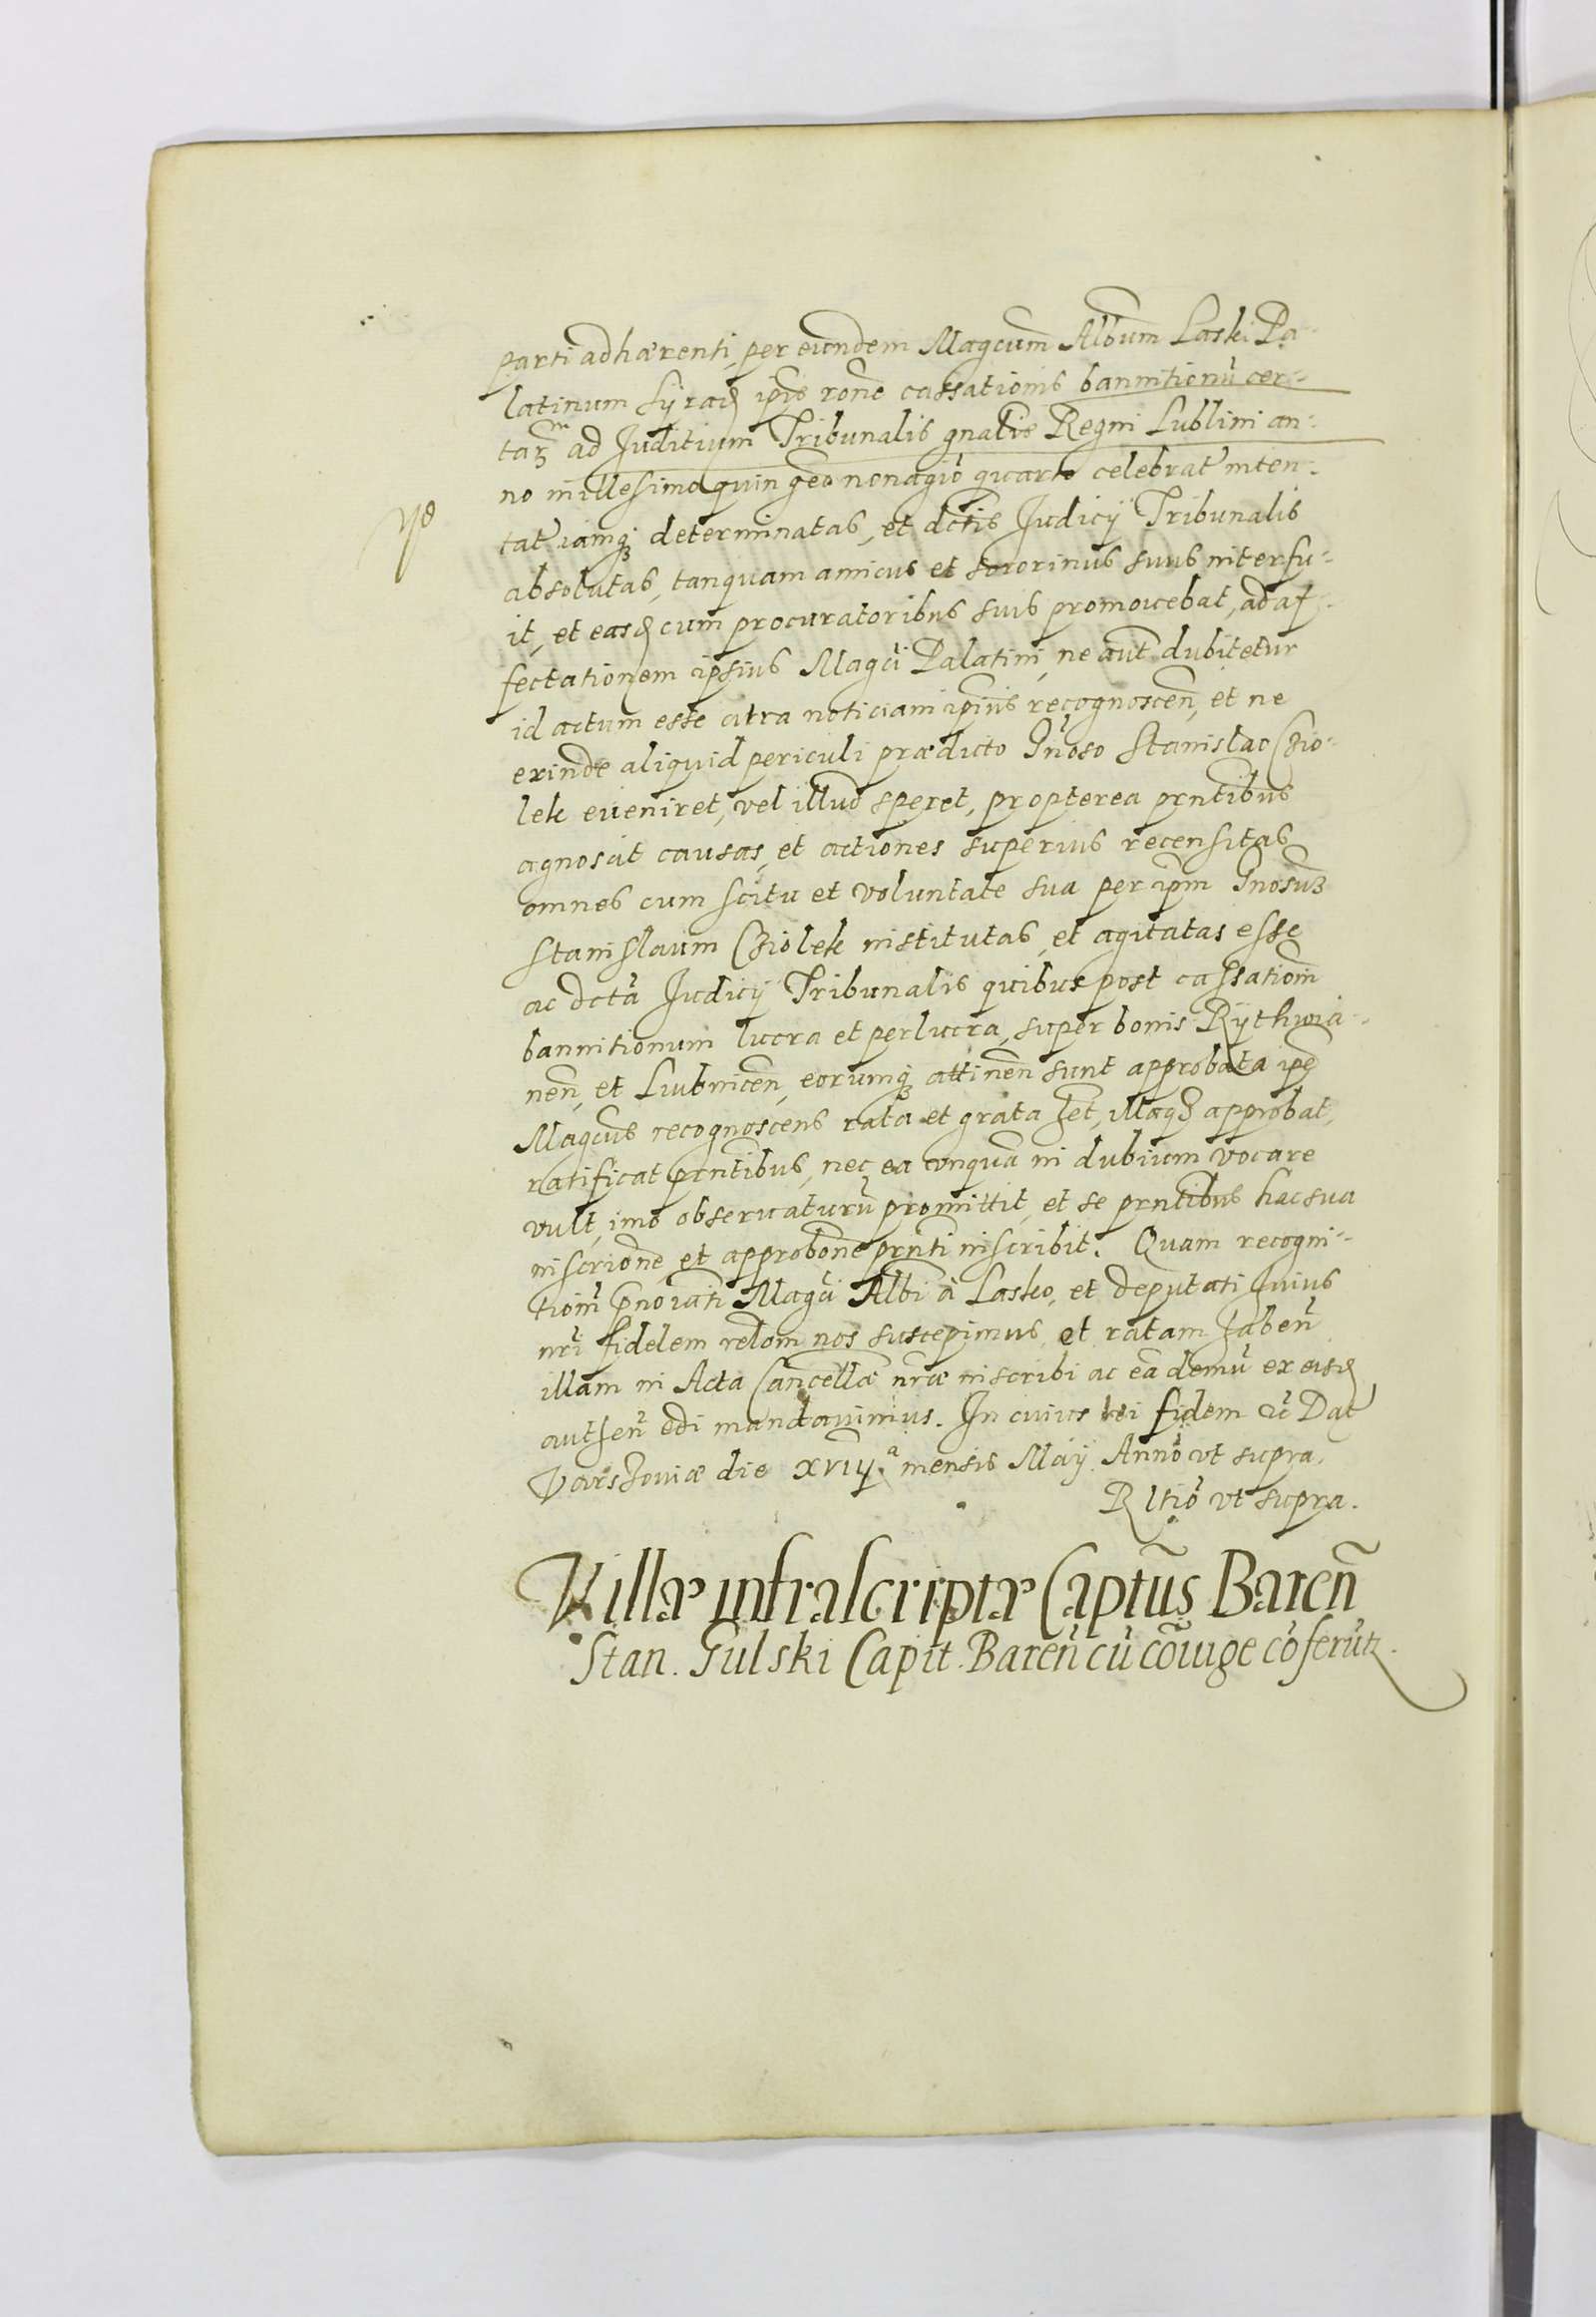 parti adhærenti, per eundem Magcum Album Laski Pa-
latinum Syrad ipse rone cassationis bannitionū cer-
tarm ad Juditium Tribunalis gnalis Regni Lublini an-
no millesimo quingeo nonagio quarto celebrat inten-
tat iamq determinatas, et dctis Judicij Tribunalis
absolutas, tanquam amicus et sororinus suus interfu-
it, et easd cum procuratoribus suis promovebat, ad af-
fectationem ipsius Magci Palatini, ne aut dubitetur
id actum esse citra noticiam ipius recognoscen, et ne
exinde aliquid periculi prædicto Gnoso Stanislao Czio-
lek eveniret, vel illud speret, propterea prntibus
agnoscit causas, et actiones superius recensitas
omnes cum scitu et voluntate sua per ipm Gnosum
Stanislaum Cziolek institutas, et agitatas esse
ac dctā Judicij Tribunalis quibus post cassationm
bannitionum lucra et perlucra, super bonis Rythwia-
nen, et Liubnicen, eorumq attinen sunt approbata ipe
Magcus recognoscens rata et grata het, illaq approbat,
ratificat prntibus, nec ea unquā in dubium vocare
vult, imo observaturū promittit, et se prntibus hac sua
inscrione et approbone prnti inscribit. Quam recogni-
tionm pnoiati Magci Albi à Lasko, et deputati huius
nri fidelem relom nos suscepimus, et ratam haben
illam in Acta Cancellæ nræ inscribi ac eā demū ex eisd
authen edi mandavimus. In cuius rei fidem &c Dat
Varshoviæ die XVIIJ.a mensis Maij Anno vt supra.
Rltiō vt supra.
Villæ infrascriptæ Captus Baren
Stan. Gulski Capit. Baren cū coiuge coferūtr.